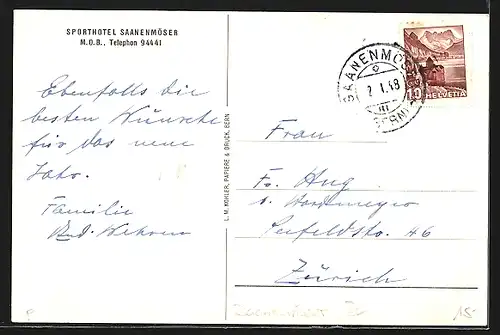 SPORTHOTEL SAANENMÖSER
M.O.B., Telephon 94441
Ebenfalls die
besten Wünsche
für das neue
Jahr.
Familie
Wehren
L. M. KOHLER, PAPIERE & DRUCK, BERN
SAANENMÖSER
2. I. 48
(BERN)
10 HELVETIA
Frau
Fr. Hug
Seefeldstr. 46
Zürich
15.-